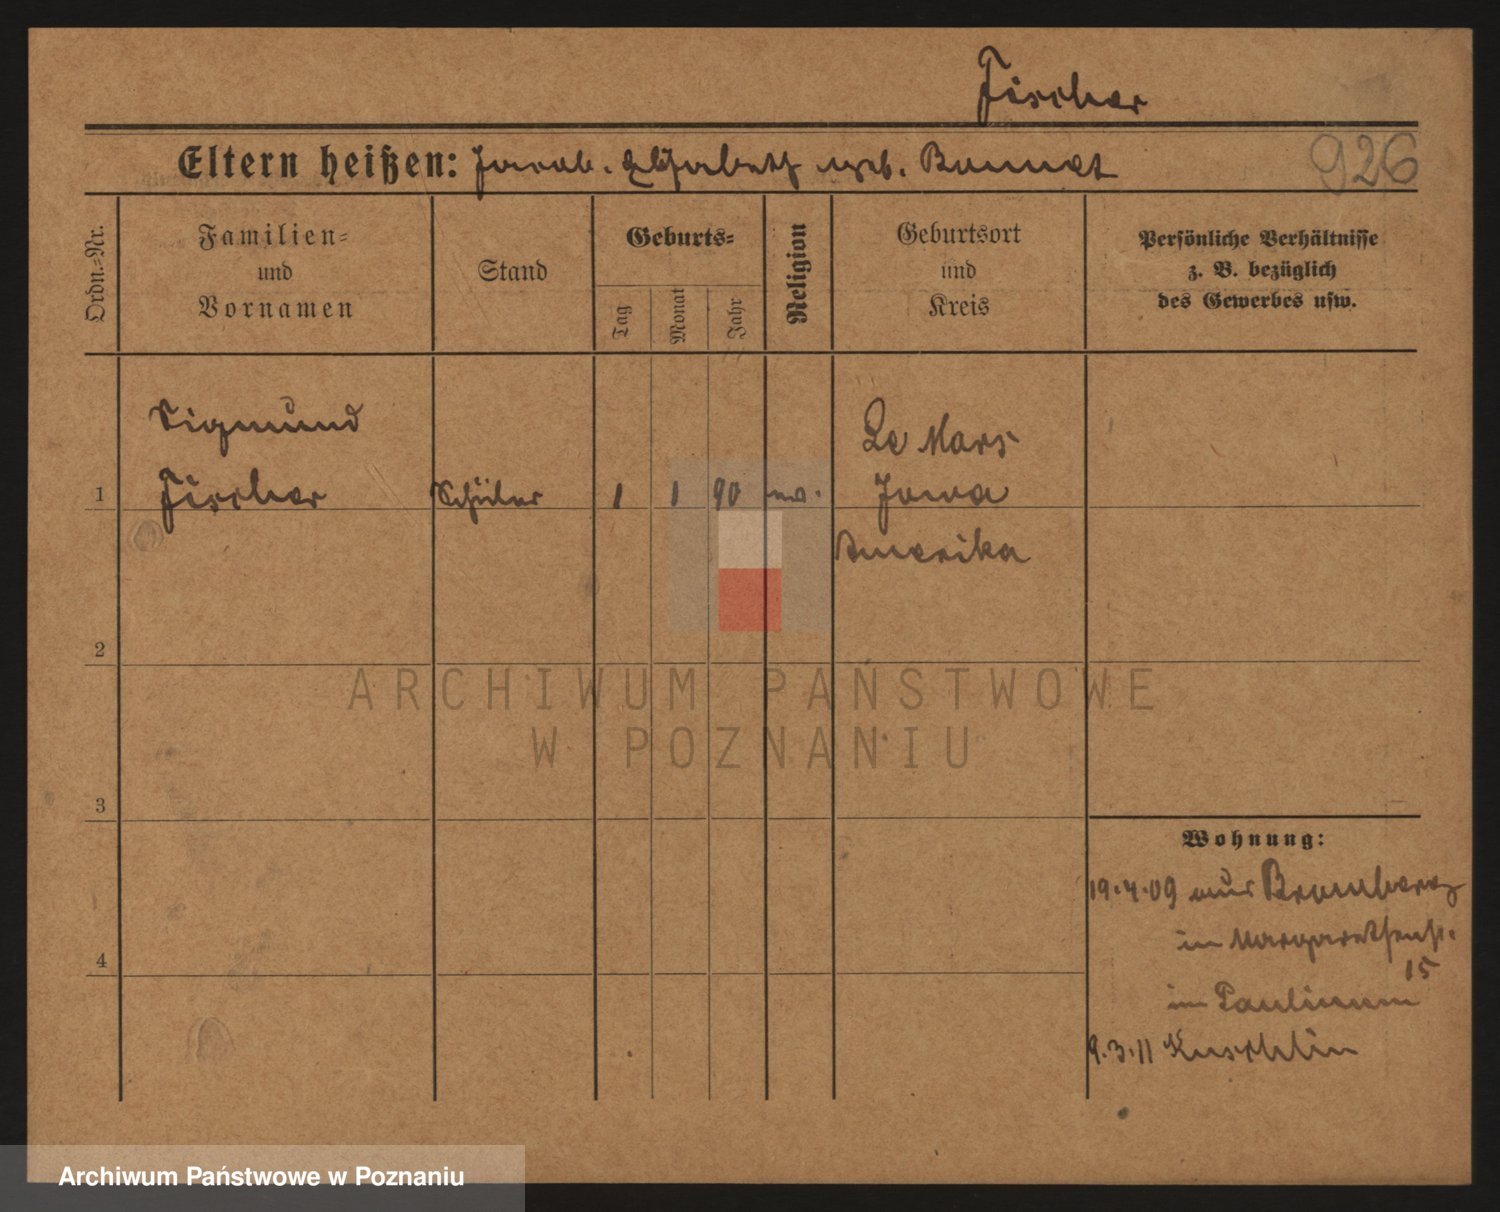 Fischer
Eltern heißen: Jacob. Elisabeth geb. Bonnet
926
Ordn.-Nr.
Familien-
und
Vornamen
Stand
Geburts-
Tag
Monat
Jahr
Religion
Geburtsort
und
Kreis
Persönliche Verhältnisse
z. B. bezüglich
des Gewerbes usw.
Sigmund
Le Mars
1
Fischer
Schüler
1
1
90
Jowa
Amerika
2
ARCHIWUM PAŃSTWOWE
W POZNANIU
3
Wohnung:
19.4.09 aus Bromberg
in Margarethenst.
4
15
im Paulinum
9.3.11 Kuschlin
Archiwum Państwowe w Poznaniu